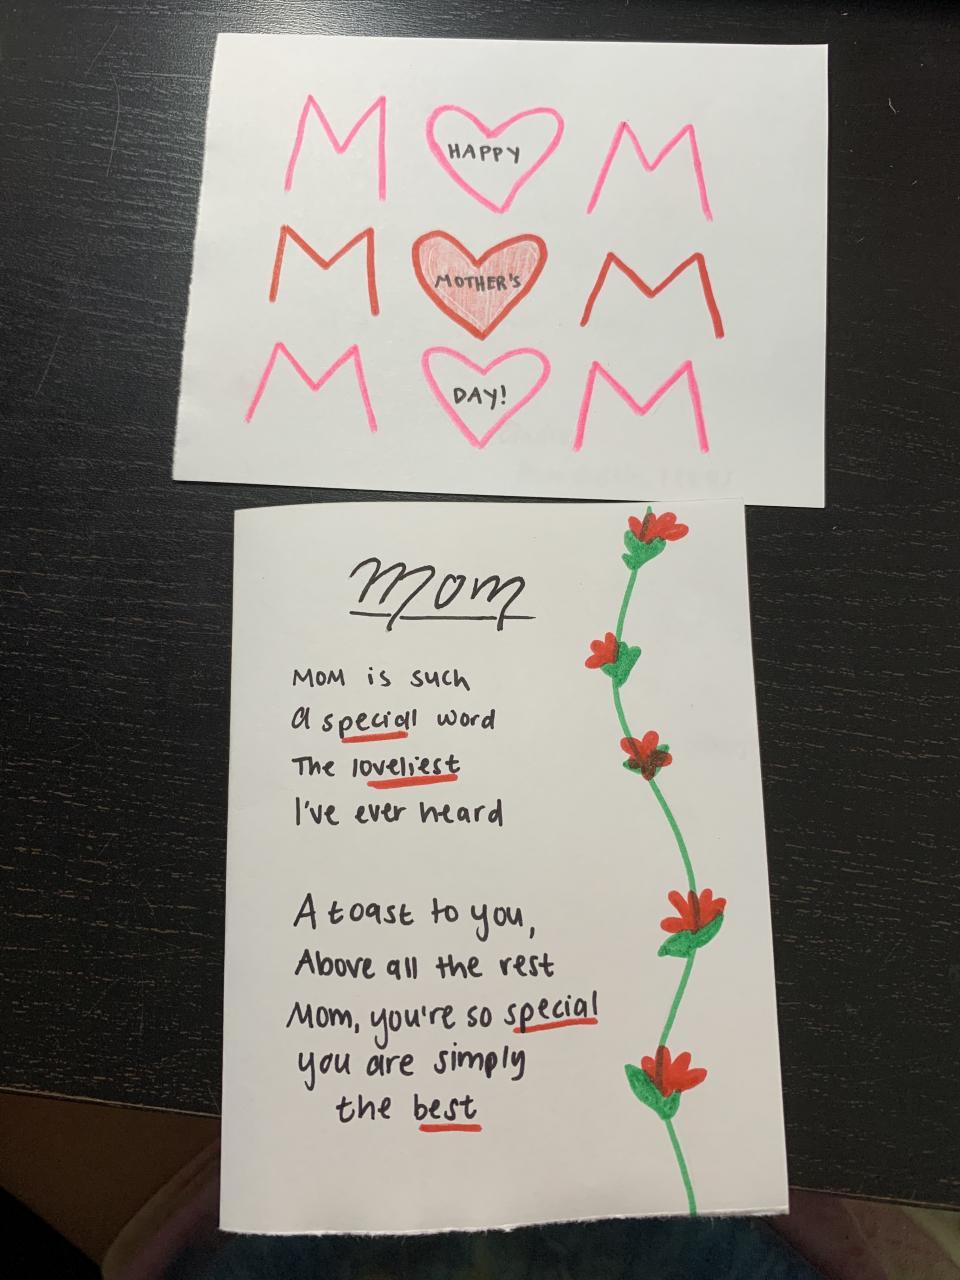 M HAPPY M
M MOTHER'S M
M DAY! M
Mom
MOM is such
a special word
The loveliest
I've ever heard
A toast to you,
Above all the rest
Mom, you're so special
you are simply
the best